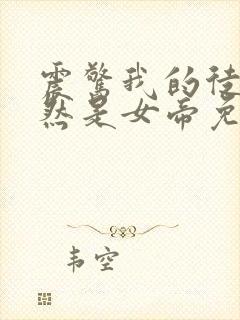 震惊我的徒
然是女帝免
韦空